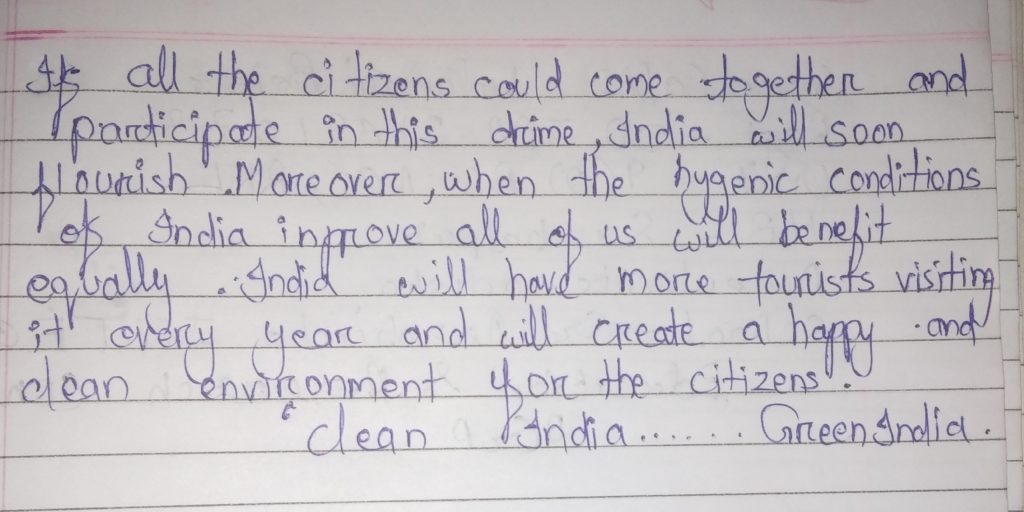 If all the citizens could come together and
participate in this drime, India will soon
flourish. Moreover, when the hygenic conditions
of India improve all of us will benefit
equally. India will have more tourists visiting
it every year and will create a happy and
clean environment for the citizens.
"clean India...... Green India.